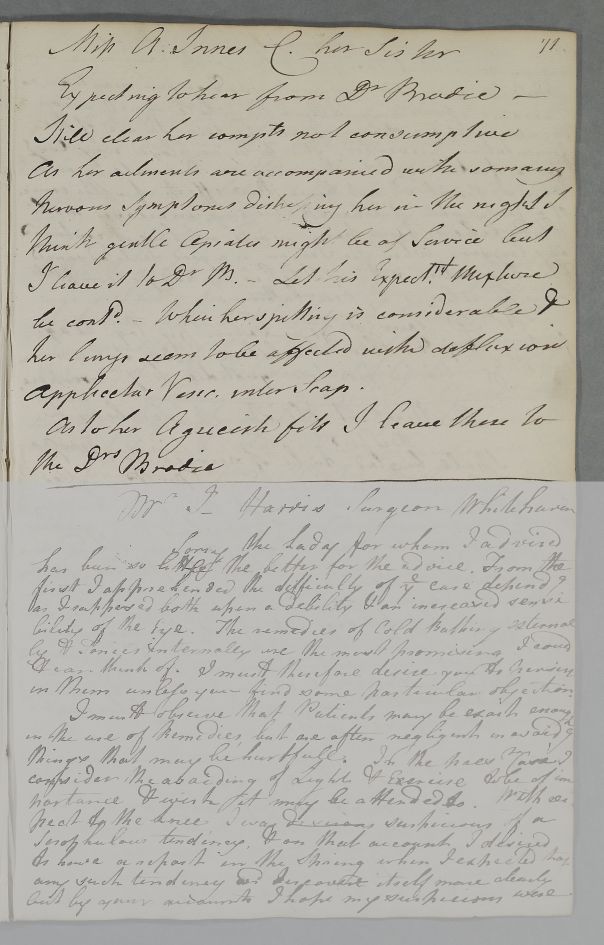 Miss A. Innes C. her Sister 71.
Expecting to hear from Dr Brodie —
Still clear her compts not consumptive
As her ailments are accompanied with so many
nervous Symptoms distressing her in the night I
think gentle Opiates might be of Service but
I leave it to Dr B. — Let his Expect.nt Mixture
be contd. — When her spitting is considerable &
her lungs seem to be affected with defluxion
applicetur Vesic. inter Scap.
As to her Agueish fits I leave these to
the Drs Brodie
Mr J Harris Surgeon Whitehaven
Sorry the Lady for whom I advised
has been so little the better for the advice. From the
first I apprehended the difficulty of ye case depend
as I supposed both upon a debility & an increased sensi
bility of the Eye. The remedies of Cold Bathing external
ly & Tonics Internally are the most promising I could
or can think of. I must therefore desire you to
in them unless you find some particular objection
I must observe that Patients may be exact enough
in the use of Remedies but are often negligent in avoidg
things that may be hurtfull. In the prest Case I
consider the avoiding of Light & Exercise to be of im
portance & wish it may be attended to. With res
pect to the knee I was suspicious of a
Scrophulous tendency, & on that account I desired
to have a report in the Spring when I expected that
any such tendency discover itself more clearly
but by your accounts I hope my suspicions were